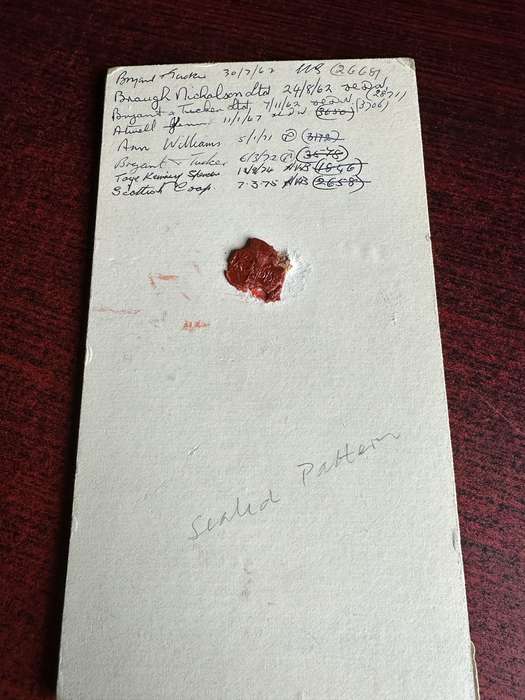 Bryant & Tucker 30/7/62 (2668)
Braugh Nicholson Ltd 24/8/62 (2871)
Bryant & Tucker Ltd 7/11/62 (3706)
Atwell 11/1/67 (3050)
Ann Williams 5/1/71 (3172)
Bryant & Tucker 6/3/72 (3578)
Kenning 74 (1846)
Scottish Coop. 7.3.75 (2658)
Sealed Pattern